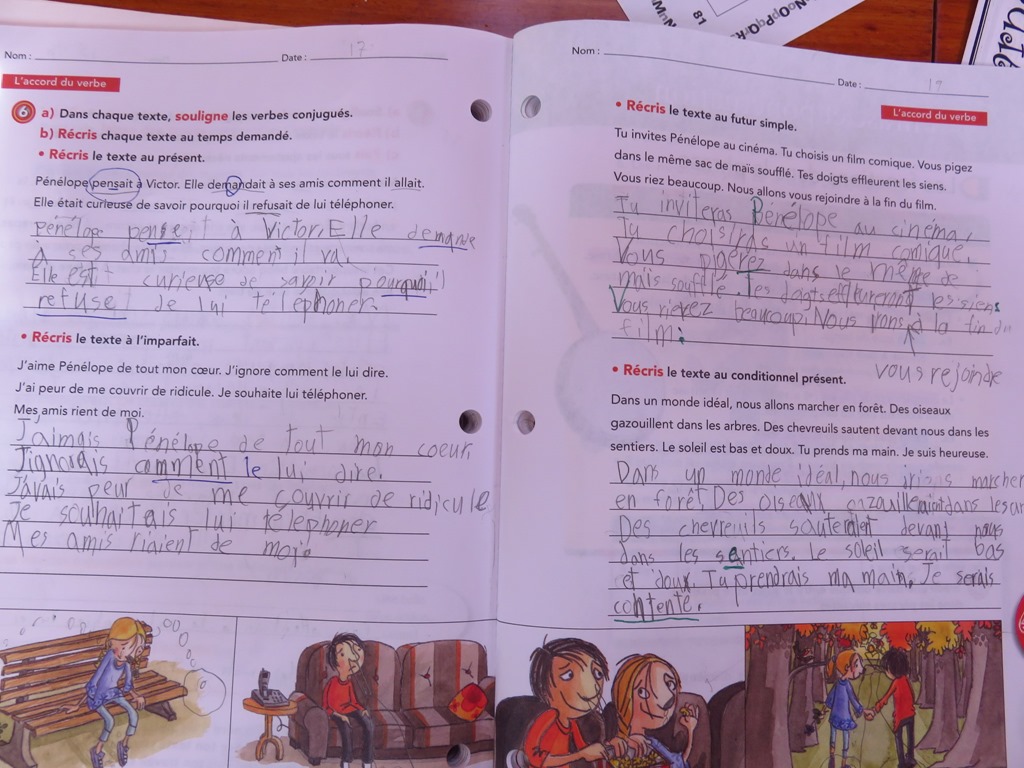 Nom : Date : 17
L'accord du verbe
6 a) Dans chaque texte, souligne les verbes conjugués.
b) Récris chaque texte au temps demandé.
• Récris le texte au présent.
Pénélope pensait à Victor. Elle demandait à ses amis comment il allait.
Elle était curieuse de savoir pourquoi il refusait de lui téléphoner.
Pénélope pense à Victor. Elle demande
À ses amis comment il va.
Elle est curieuse de savoir pourquoi il
refuse de lui téléphoner.
• Récris le texte à l'imparfait.
J'aime Pénélope de tout mon cœur. J'ignore comment le lui dire.
J'ai peur de me couvrir de ridicule. Je souhaite lui téléphoner.
Mes amis rient de moi.
J'aimais Pénélope de tout mon coeur.
J'ignorais comment le lui dire.
J'avais peur de me couvrir de ridicule
Je souhaitais lui téléphoner
Mes amis riaient de moi.
Nom : Date : 17
L'accord du verbe
• Récris le texte au futur simple.
Tu invites Pénélope au cinéma. Tu choisis un film comique. Vous pigez
dans le même sac de maïs soufflé. Tes doigts effleurent les siens.
Vous riez beaucoup. Nous allons vous rejoindre à la fin du film.
Tu inviteras Pénélope au cinéma.
Tu choisiras un film comique.
Vous pigerez dans le même de
maïs soufflé. Tes doigts effleureront les siens
Vous rierez beaucoup. Nous irons à la fin du
film.
vous rejoindre
• Récris le texte au conditionnel présent.
Dans un monde idéal, nous allons marcher en forêt. Des oiseaux
gazouillent dans les arbres. Des chevreuils sautent devant nous dans les
sentiers. Le soleil est bas et doux. Tu prends ma main. Je suis heureuse.
Dans un monde idéal, nous marcher
en forêt. Des oiseaux dans les
Des chevreuils sauteraient devant nous
dans les sentiers. Le soleil serait bas
et doux. Tu prendrais ma main. Je serais
contente.